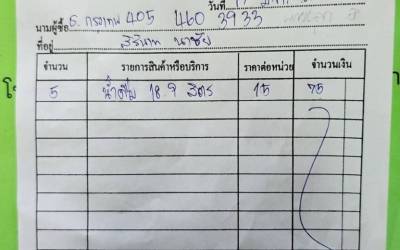 วันที่
นามผู้ซื้อ ธ. กรุงเทพ 405 460 3933
ที่อยู่
จำนวน รายการสินค้าหรือบริการ ราคาต่อหน่วย จำนวนเงิน
5 น้ำดื่ม 18.9 ลิตร 15 75